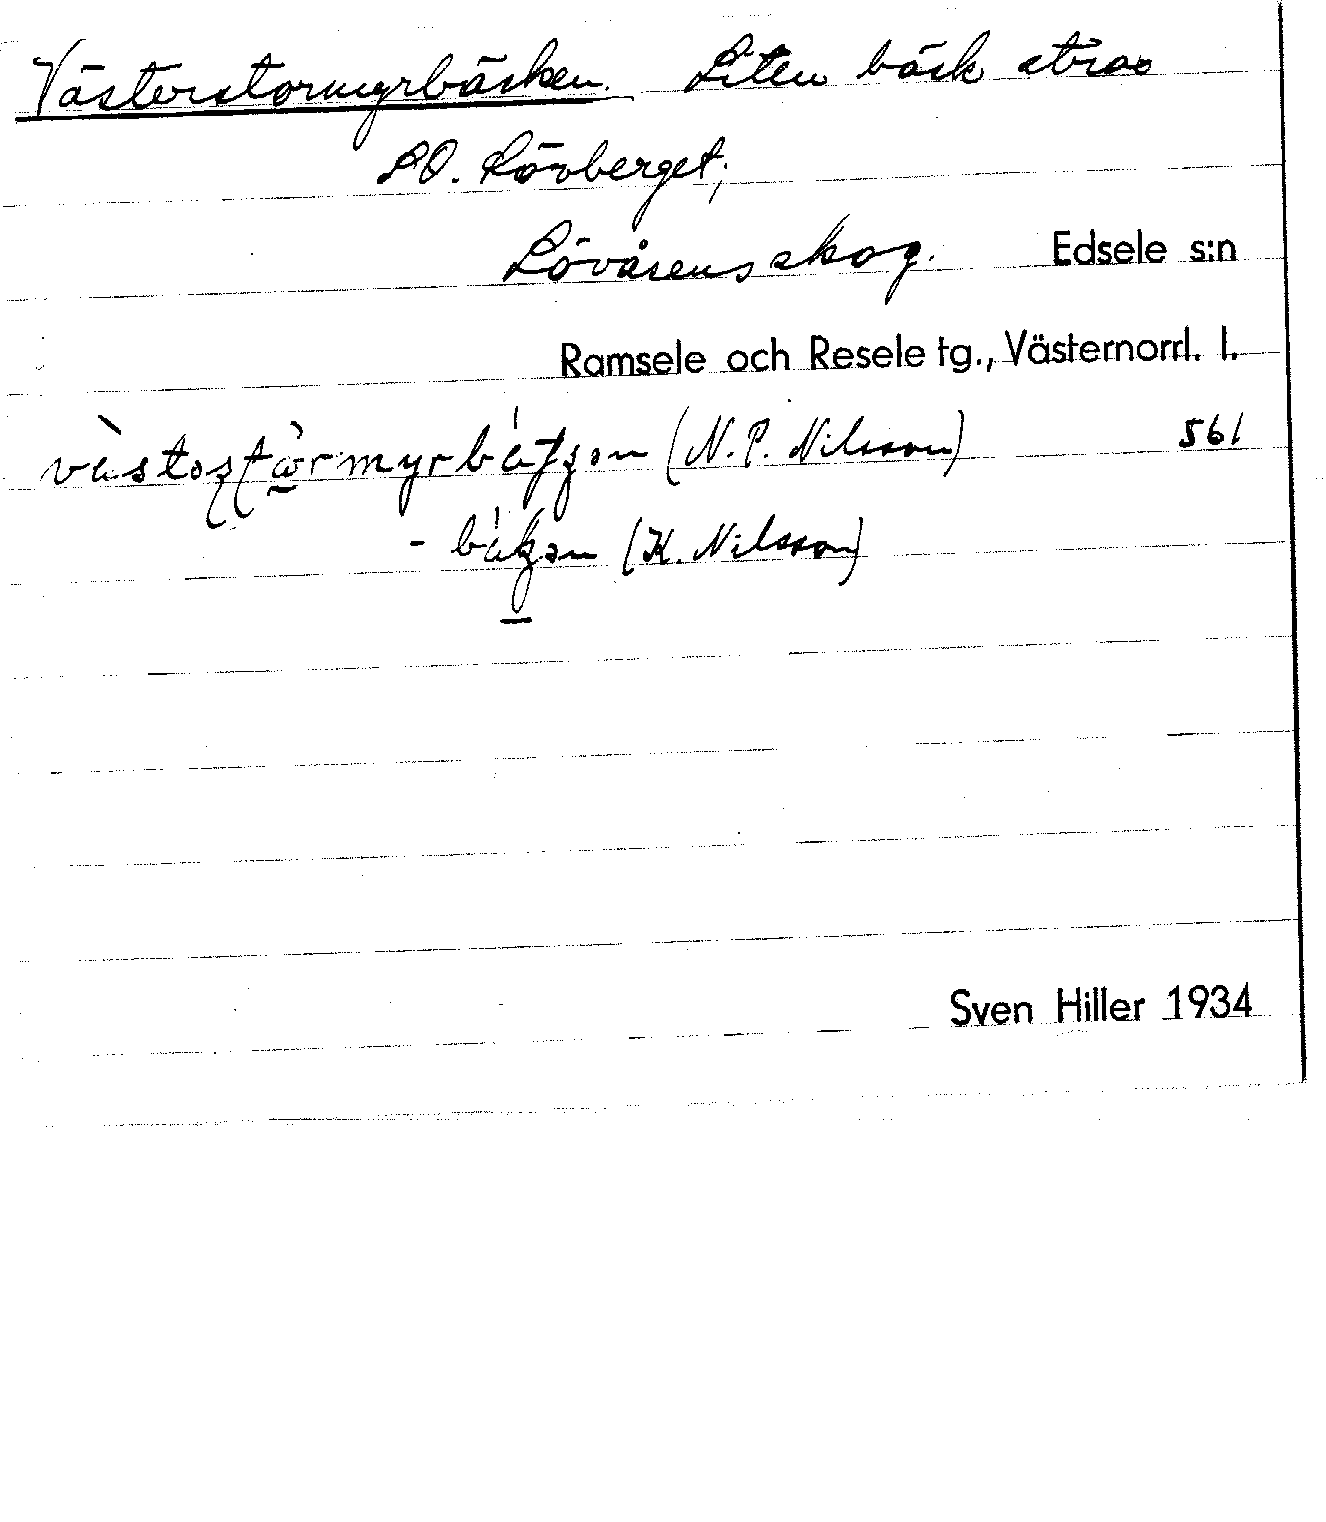 Västerstormyrbäcken. Liten bäck strax
SO. Lövberget;
Lövåsens skog. Edsele s:n
Ramsele och Resele tg., Västernorrl. l.
(N. P. Nilsson) 561
(K. Nilsson)
Sven Hiller 1934